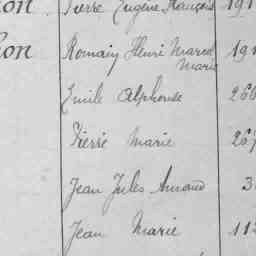 on Pierre Eugène François 191
on Romain Henri Marcel 191
Marie
Emile Alphonse 266
Pierre Marie 267
Jean Jules Armand 3
Jean Marie 112